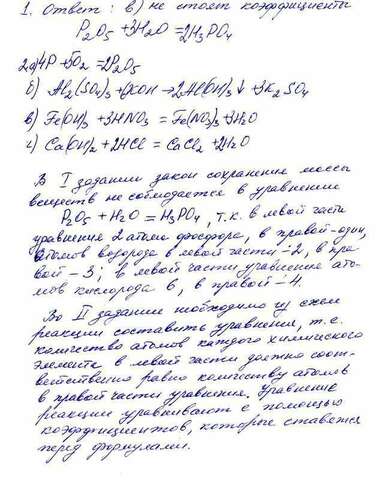 1. Ответ: в) не стоят коэффициенты
P₂O₅ + 3H₂O = 2H₃PO₄
2. а) 4P + 5O₂ = 2P₂O₅
б) Al₂(SO₄)₃ + 6KOH → 2Al(OH)₃↓ + 3K₂SO₄
в) Fe(OH)₃ + 3HNO₃ = Fe(NO₃)₃ + 3H₂O
г) Ca(OH)₂ + 2HCl = CaCl₂ + 2H₂O
В I задании закон сохранения массы
веществ не соблюдается в уравнении
P₂O₅ + H₂O = H₃PO₄, т.к. в левой части
уравнения 2 атома фосфора, в правой - один,
атомов водорода в левой части - 2, в пра-
вой - 3; в левой части уравнения ато-
мов кислорода 6, в правой - 4.
Во II задании необходимо из схем
реакции составить уравнения, т.е.
количество атомов каждого химического
элемента в левой части должно соот-
ветственно равно количеству атомов
в правой части уравнения. Уравнение
реакции уравнивают с помощью
коэффициентов, которые ставятся
перед формулами.